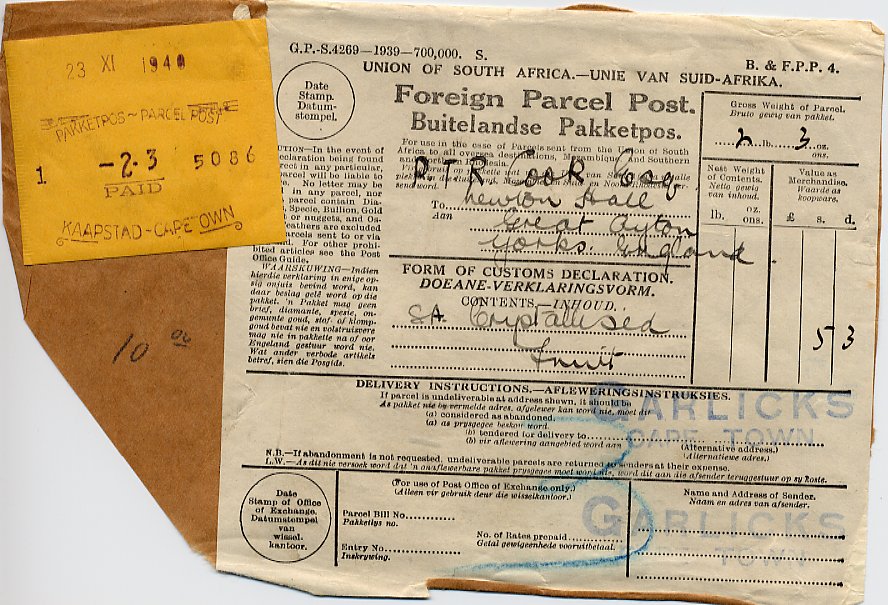 23 XI 1940
PAKKETPOS ~ PARCEL POST
1 -2.3 5086
PAID
KAAPSTAD~CAPE OWN
10
G.P.-S.4269—1939—700,000. S.
B. & F.P.P. 4.
UNION OF SOUTH AFRICA.—UNIE VAN SUID-AFRIKA.
Date
Stamp.
Datum-
stempel.
Foreign Parcel Post.
Buitelandse Pakketpos.
For use in the case of Parcels sent from the Union of South
Africa to all overseas destinations, Mozambique and Southern
To
Aan
Newton Hall
Great Ayton
Yorks. England.
Gross Weight of Parcel.
Bruto gewig van pakket.
2 lb. 3 oz.
ons.
Nett Weight
of Contents.
Netto gewig
van inhoud.
Value as
Merchandise.
Waarde as
koopware.
lb. oz.
ons.
£ s. d.
5 3
UTION—In the event of
declaration being found
rrect in any particular,
parcel will be liable to
e. No letter may be
in any parcel, nor
parcel contain Dia-
, Specie, Bullion, Gold
or nuggets, and Os-
feathers are excluded
parcels sent to or via
nd. For other prohi-
bited articles see the Post
Office Guide.
WAARSKUWING—Indien
hierdie verklaring in enige op-
sig onjuis bevind word, kan
daar beslag gelê word op die
pakket. 'n Pakket mag geen
brief, diamante, spesie, on-
gemunte goud, stof- of klomp-
goud bevat nie en volstruisvere
mag nie in pakkette na of oor
Engeland gestuur word nie.
Wat ander verbode artikels
betref, sien die Posgids.
FORM OF CUSTOMS DECLARATION.
DOEANE-VERKLARINGSVORM.
CONTENTS.—INHOUD.
SA Crystallised
Fruit
DELIVERY INSTRUCTIONS.—AFLEWERINGSINSTRUKSIES.
If parcel is undeliverable at address shown, it should be
As pakket nie by vermelde adres. afgelewer kan word nie, moet dit
(a) considered as abandoned.
(a) as prysgegee beskou word.
(b) tendered for delivery to
(b) vir aflewering aangebied word aan
(Alternative address.)
(Alternatiewe adres.)
GARLICKS
CAPE TOWN
N.B.—If abandonment is not requested, undeliverable parcels are returned to senders at their expense.
L.W.—As dit nie versoek word dat 'n onaflewerbare pakket prysgegee moet word nie, word dit aan die afsender teruggestuur op sy koste.
Date
Stamp of Office
of Exchange.
Datumstempel
van
wissel-
kantoor.
(For use of Post Office of Exchange only.)
(Alleen vir gebruik deur die wisselkantoor.)
Parcel Bill No.
Pakketlys no.
No. of Rates prepaid
Getal gewigeenhede vooruitbetaal.
Entry No.
Inskrywing.
Name and Address of Sender.
Naam en adres van afsender.
GARLICKS
TOWN